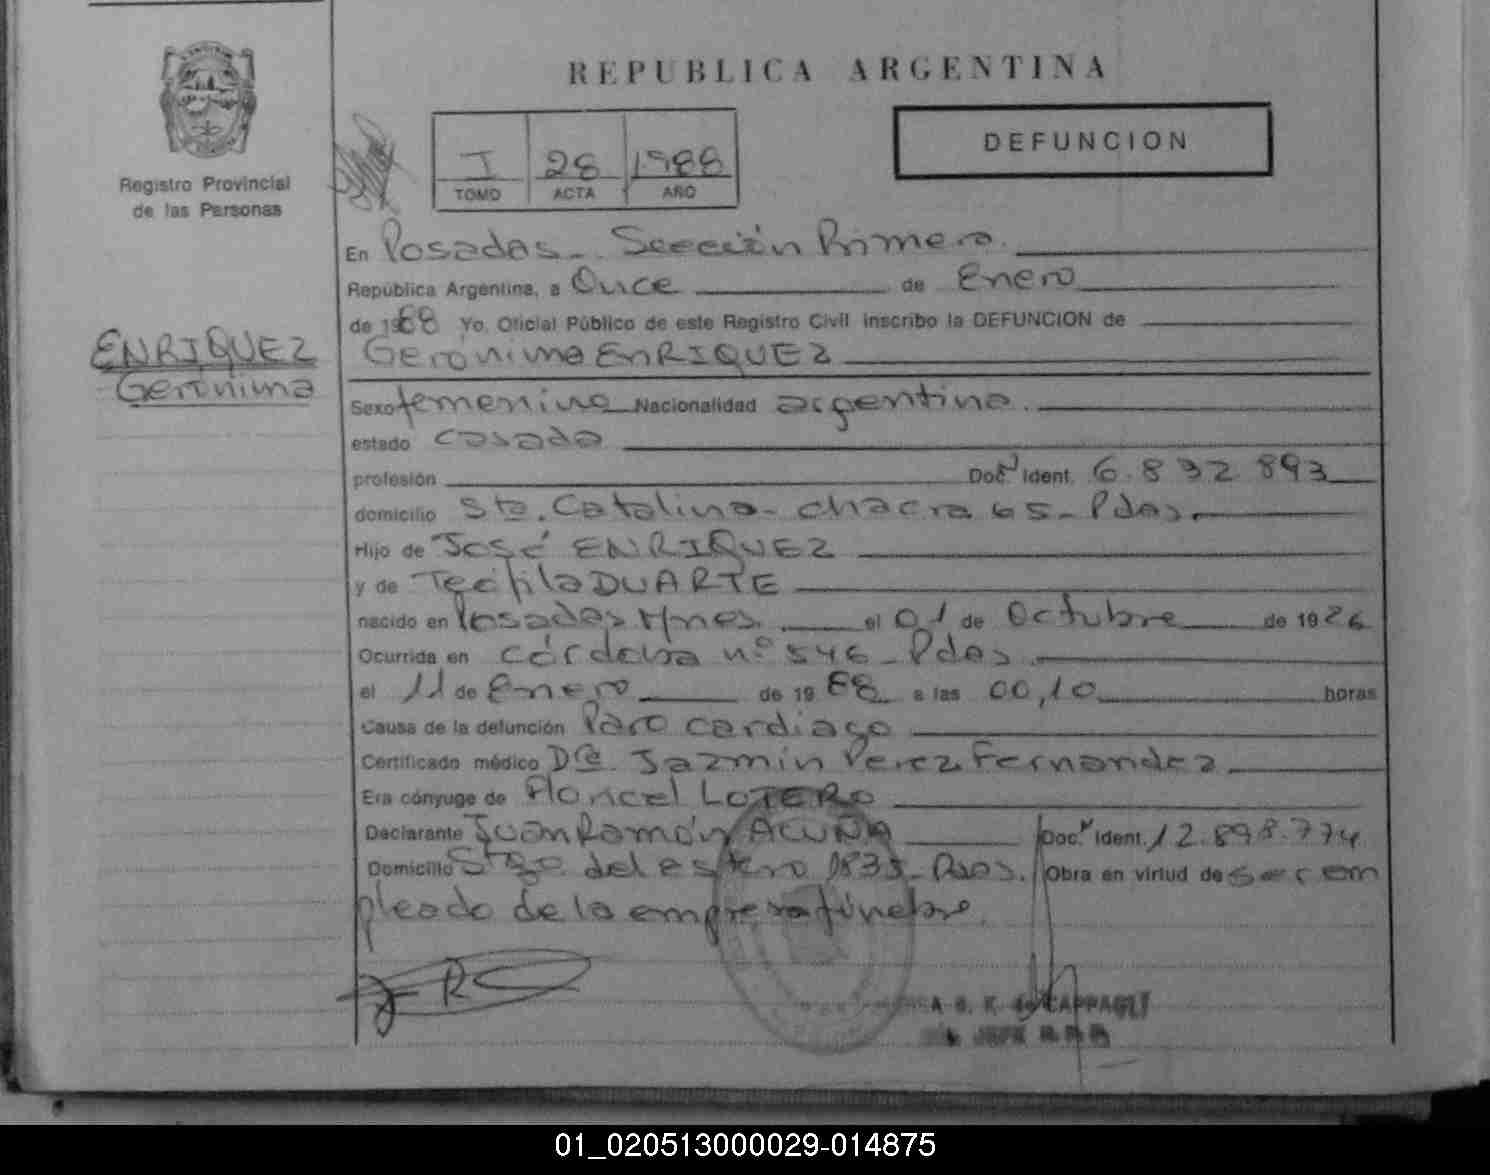 REPUBLICA ARGENTINA
Registro Provincial
de las Personas
I 28 1988
TOMO ACTA AÑO
DEFUNCION
En Posadas - Sección Primera
República Argentina, a Once de Enero
de 1988 Yo, Oficial Público de este Registro Civil inscribo la DEFUNCION de
Gerónima ENRIQUEZ
ENRIQUEZ
Gerónima
Sexo femenino Nacionalidad argentina.
estado casada
profesión Doc. Ident. 6.832.893
domicilio Sta. Catalina - chacra 65 - Pdas.
Hijo de José ENRIQUEZ
y de Teofila DUARTE
nacido en Posadas Mnes. el 01 de Octubre de 1926
Ocurrida en córdoba nº 546 - Pdas.
el 11 de Enero de 1988 a las 00,10 horas
Causa de la defunción Paro cardiaco
Certificado médico Dra. Jazmín Perez Fernandez
Era cónyuge de LOTERO
Declarante Juan Ramón ACUÑA Doc. Ident. 12.898.774
Domicilio Stgo. del estero 1835 - Pdas. Obra en virtud de ser em
pleado de la empresa fúnebre.
CAPPAGLI
JEFE
01_020513000029-014875